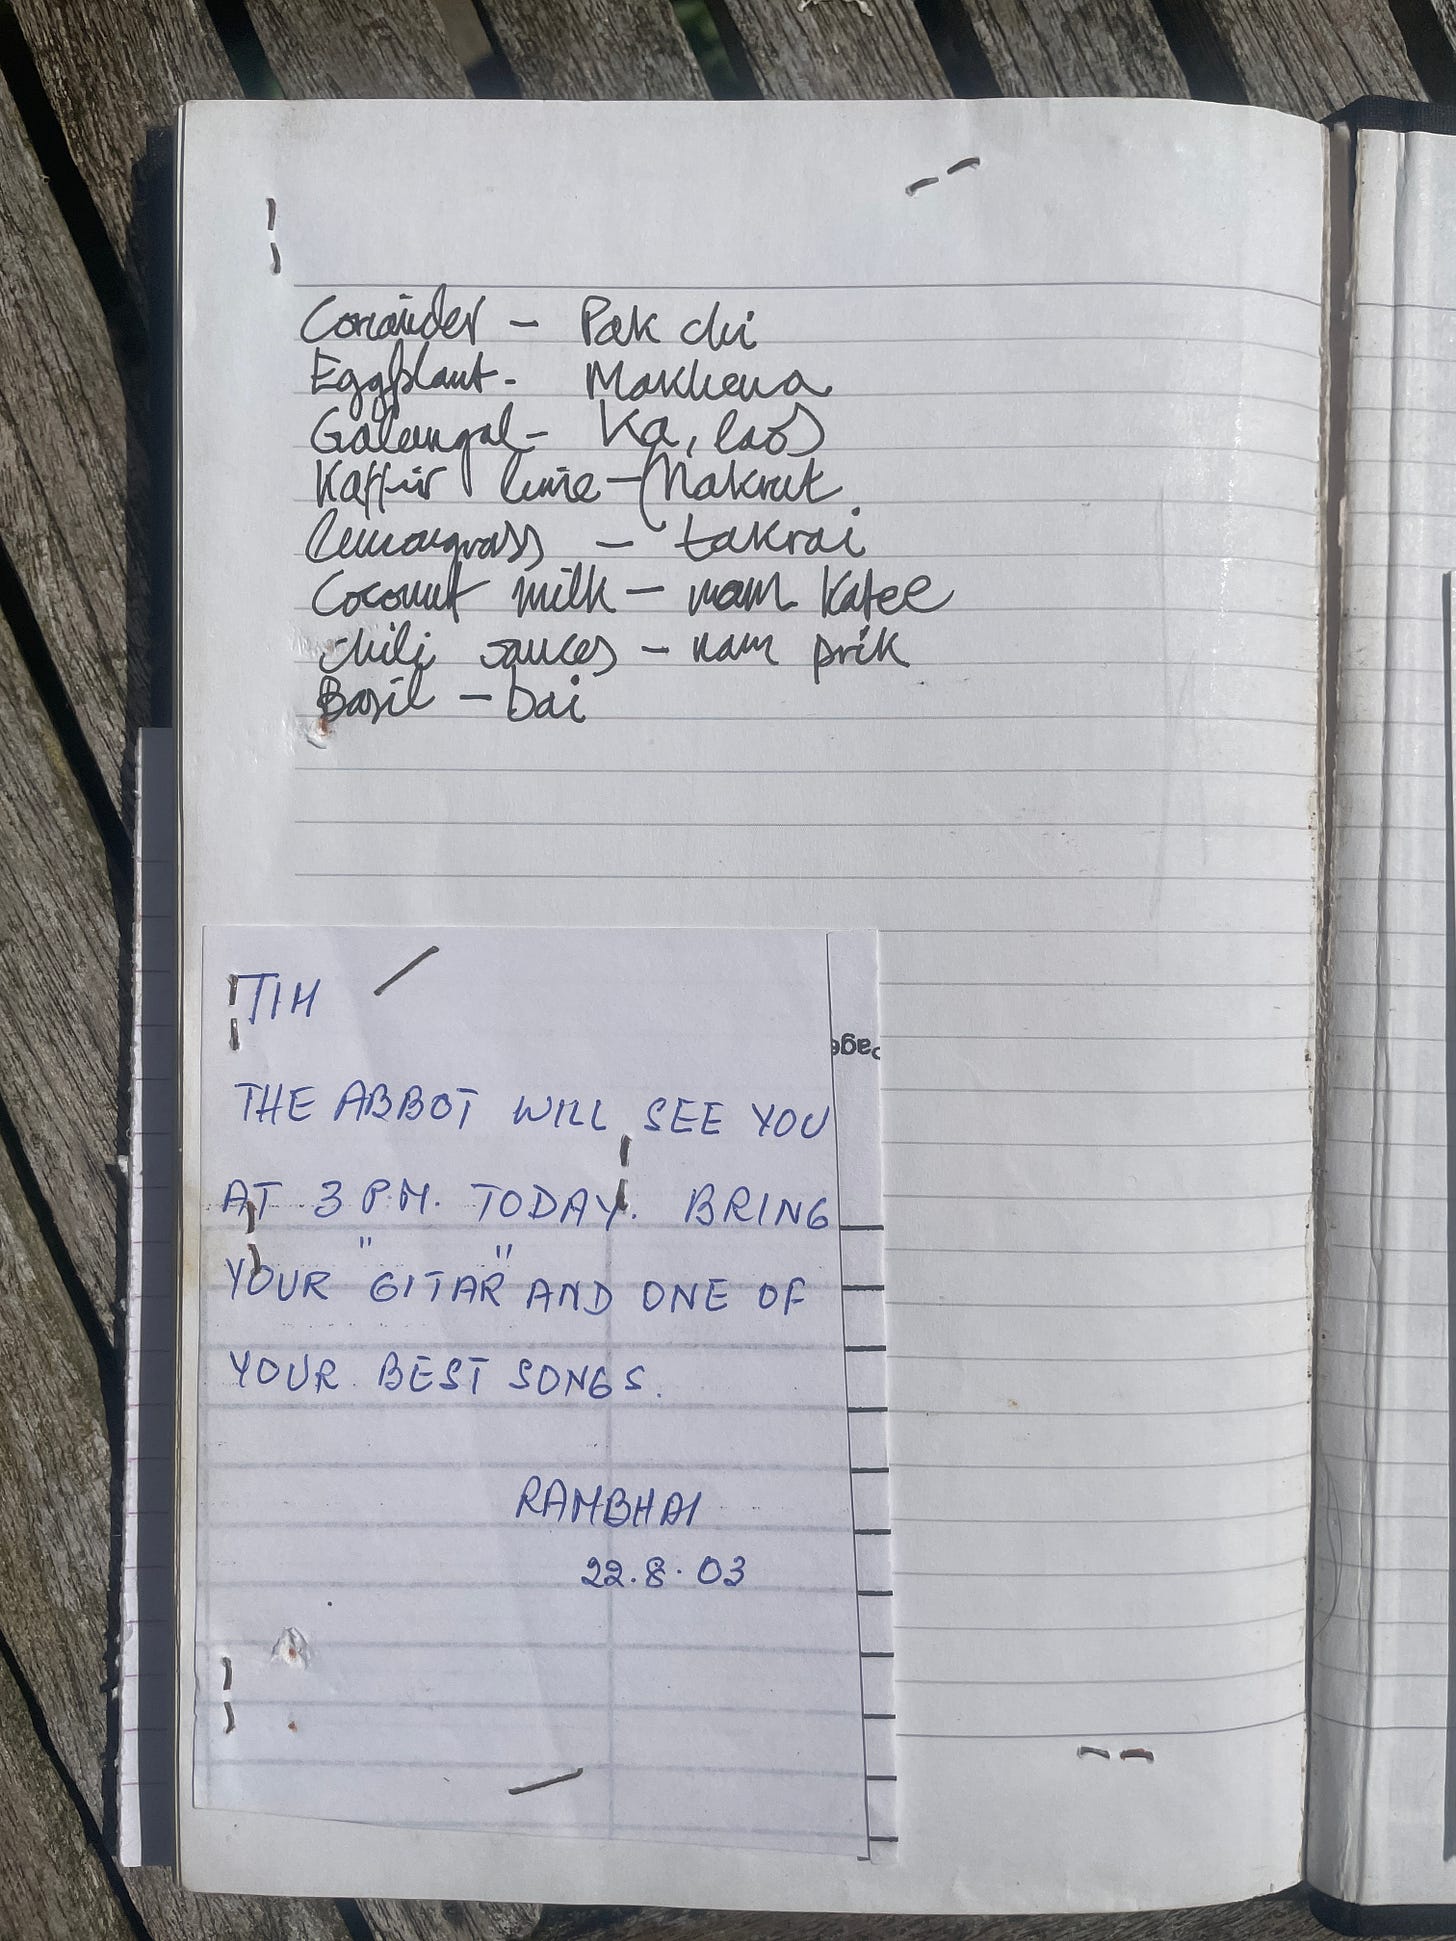 Coriander - Pak chi
Eggplant - Makheua
Galangal - Ka, laos
Kaffir lime - Makrut
lemongrass - takrai
Coconut milk - nam Katee
chili sauces - nam prik
Basil - bai
TIM
THE ABBOT WILL SEE YOU
AT 3 P.M. TODAY. BRING
YOUR "GITAR" AND ONE OF
YOUR BEST SONGS.
RAMBHAI
22.8.03